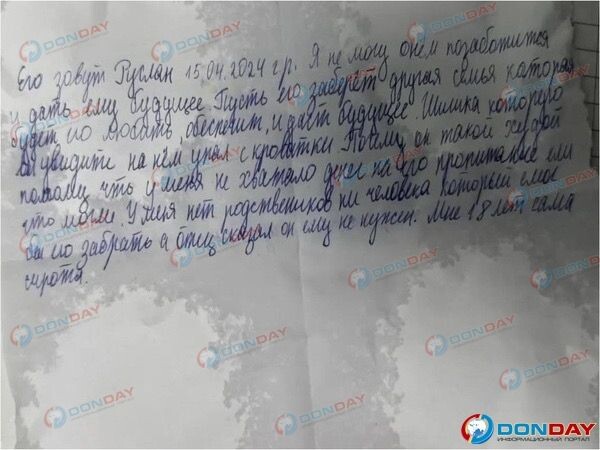 Его зовут Руслан 15.04.2024 г.р. Я не могу онем позаботится
и дать ему будущее. Пусть его заберёт другая семья которая
будет го любать обеспечит, и даст будущее. Шишка которую
вы увидити на нём упал с кроватки. Почему он такой худой
потому, что у меня не хватало денег на его пропитание ели
что могли. У меня нет родствеников ни человека который смог
бы го забрать а отец сказал он ему не нужен. Мне 18 лет сама
сирота.
DONDAY
DONDAY
DONDAY
DONDAY
DONDAY
DONDAY
DONDAY
DONDAY
DONDAY
DONDAY
DONDAY
DONDAY
DONDAY
ИНФОРМАЦИОННЫЙ ПОРТАЛ